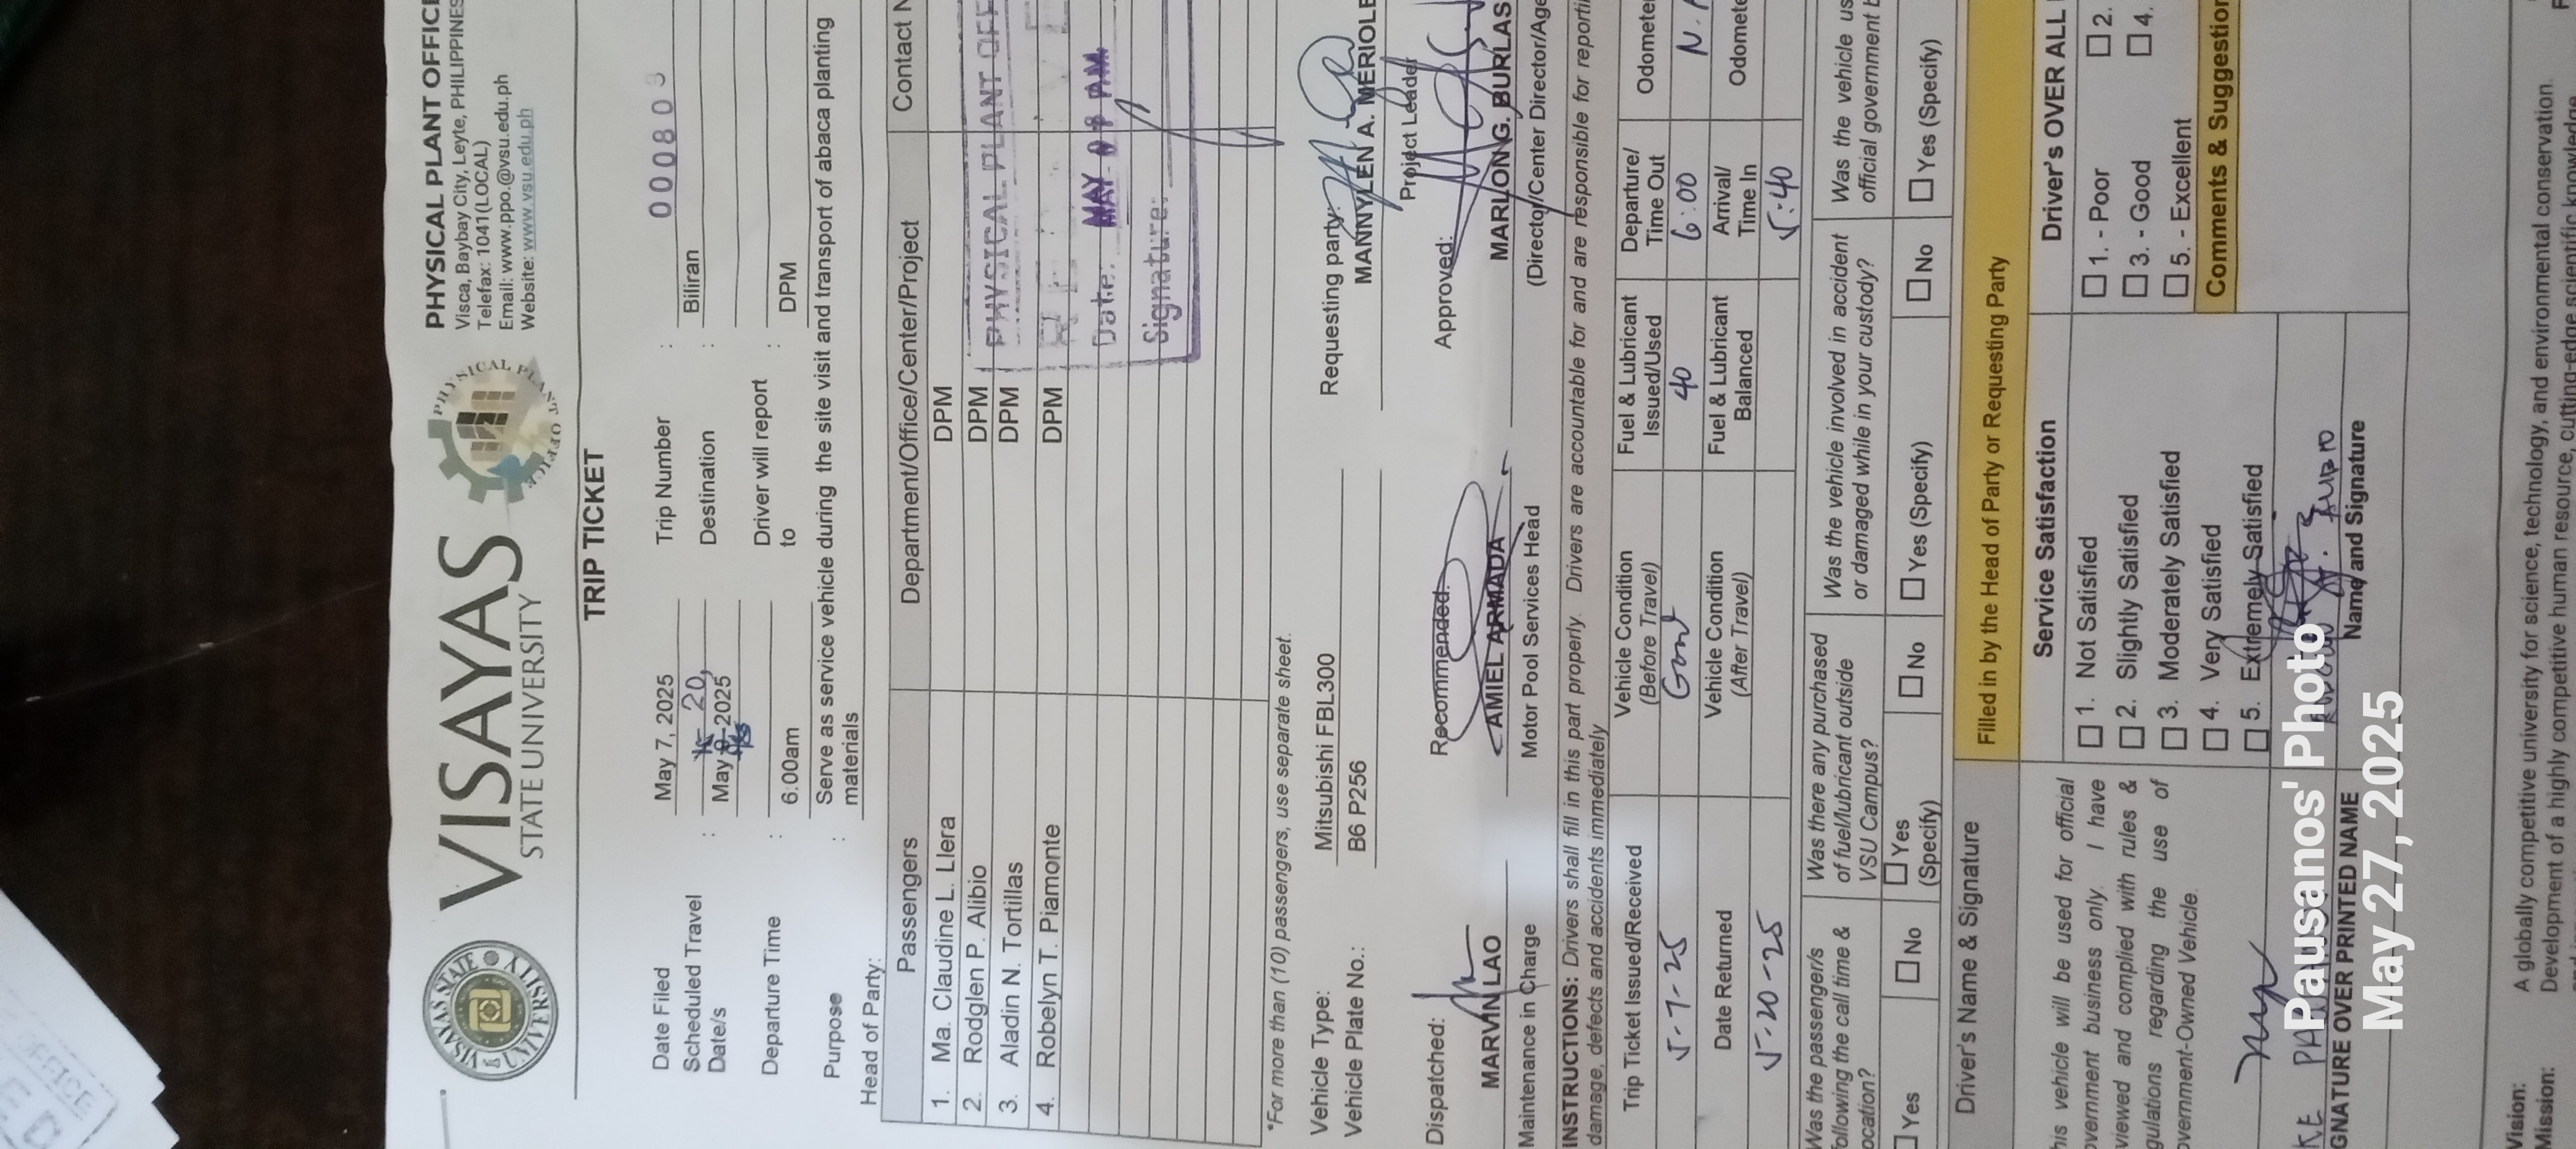 VISAYAS
STATE UNIVERSITY
VISAYAS STATE UNIVERSITY
PHYSICAL PLANT OFFICE
PHYSICAL PLANT OFFI
Visca, Baybay City, Leyte, PHILIPPINES
Telefax: 1041(LOCAL)
Email: www.ppo.@vsu.edu.ph
Website: www.vsu.edu.ph
TRIP TICKET
Date Filed : May 7, 2025 Trip Number : 000803
Scheduled Travel Date/s : May 20, 2025 Destination : Biliran
Departure Time : 6:00am Driver will report to : DPM
Purpose : Serve as service vehicle during the site visit and transport of abaca planting
materials
Head of Party:
Passengers Department/Office/Center/Project Contact N
1. Ma. Claudine L. Llera DPM
2. Rodglen P. Alibio DPM
3. Aladin N. Tortillas DPM
4. Robelyn T. Piamonte DPM
PHYSICAL PLANT OFF
Date: MAY 08 P.M.
Signature:
*For more than (10) passengers, use separate sheet.
Vehicle Type: Mitsubishi FBL300 Requesting party:
Vehicle Plate No.: B6 P256 MANNYLEN A. MERIOLE
Project Leader
Dispatched: Recommended: Approved:
MARVIN LAO AMIEL ARMADA MARLON G. BURLAS
Maintenance in Charge Motor Pool Services Head (Director/Center Director/Age
INSTRUCTIONS: Drivers shall fill in this part properly. Drivers are accountable for and are responsible for reporti
damage, defects and accidents immediately
Trip Ticket Issued/Received Vehicle Condition (Before Travel) Fuel & Lubricant Issued/Used Departure/ Time Out Odomete
5-7-25 Good 40 6:00 N.
Date Returned Vehicle Condition (After Travel) Fuel & Lubricant Balanced Arrival/ Time In Odomete
5-20-25 5:40
Was the passenger/s following the call time & ocation? Was there any purchased of fuel/lubricant outside VSU Campus? Was the vehicle involved in accident or damaged while in your custody? Was the vehicle us official government b
Yes No Yes (Specify) No Yes (Specify) No Yes (Specify)
Driver's Name & Signature Filled in by the Head of Party or Requesting Party
Service Satisfaction Driver's OVER ALL
his vehicle will be used for official
overnment business only. I have
viewed and complied with rules &
gulations regarding the use of
overnment-Owned Vehicle.
1. Not Satisfied
2. Slightly Satisfied
3. Moderately Satisfied
4. Very Satisfied
5. Extremely Satisfied
1. - Poor 2.
3. - Good 4.
5. - Excellent
Comments & Suggestion
GNATURE OVER PRINTED NAME Name and Signature
Vision: A globally competitive university for science, technology, and environmental conservation.
Mission: Development of a highly competitive human resource, cutting-edge scientific knowledge
Pausanos' Photo
May 27, 2025